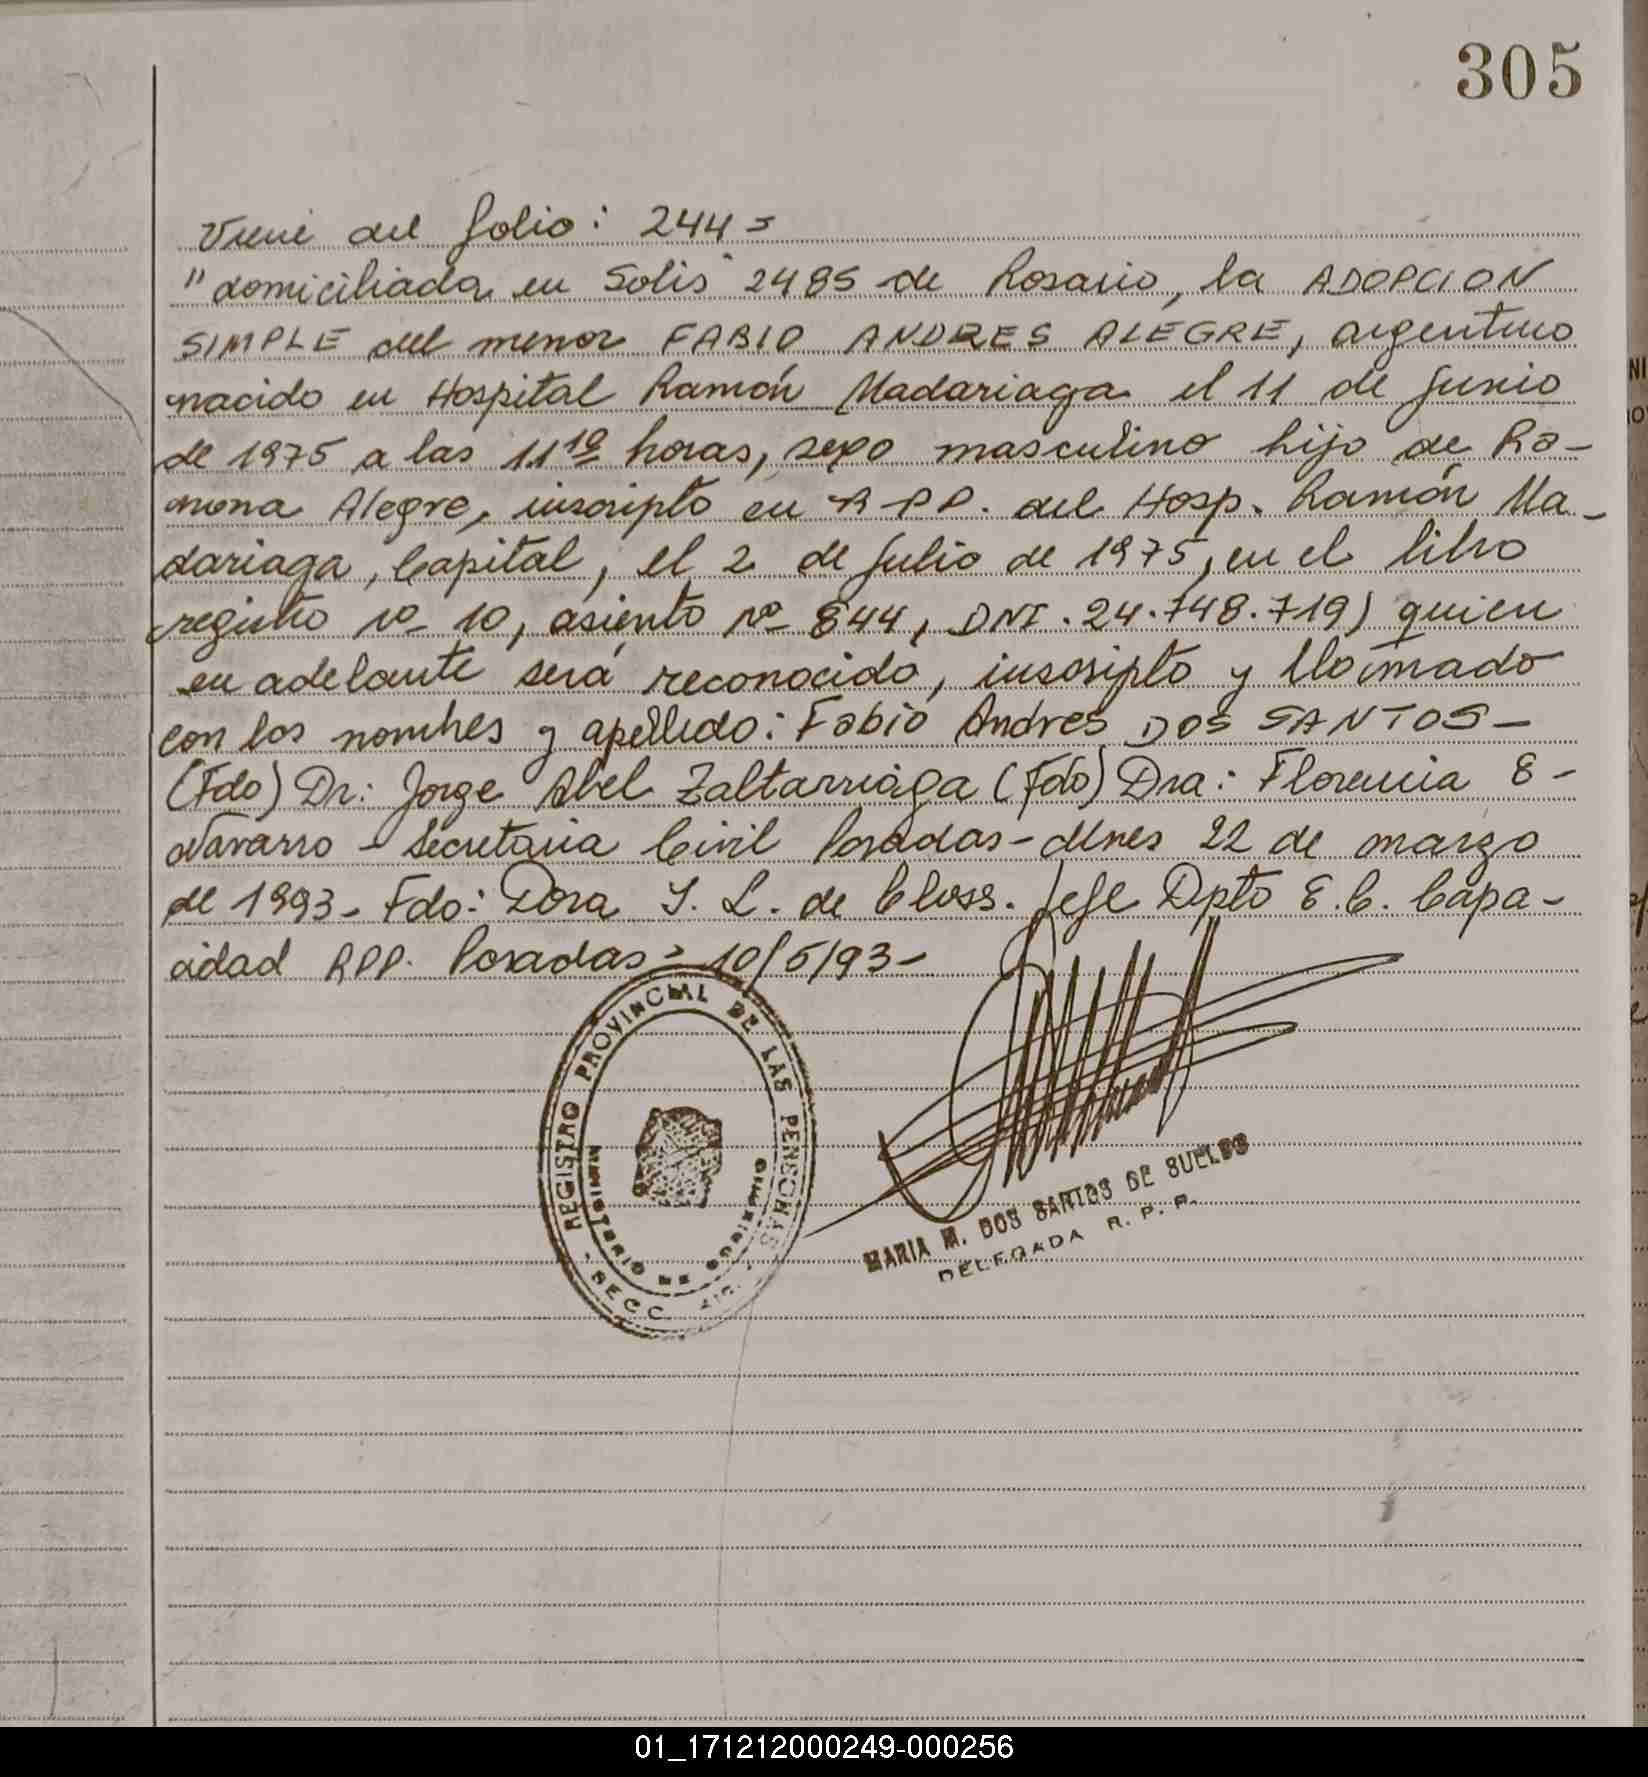 305
Viene del folio: 244=
"domiciliada en Solis 2485 de Rosario, la ADOPCION
SIMPLE del menor FABIO ANDRES ALEGRE, argentino
nacido en Hospital Ramón Madariaga el 11 de Junio
de 1975 a las 11¹⁰ horas, sexo masculino hijo de Ra-
mona Alegre, inscripto en R.P.P. del Hosp. Ramón Ma-
dariaga, Capital, el 2 de Julio de 1975, en el libro
registro nº 10, asiento nº 844, DNI. 24.748.719) quien
en adelante será reconocido, inscripto y llamado
con los nombres y apellido: Fabio Andres DOS SANTOS-
(Fdo) Dr: Jorge Abel Zaltarriaga (Fdo) Dra: Florencia E-
Navarro - Secretaria Civil Posadas - Mnes 22 de marzo
de 1993- Fdo: Dora I. L. de Closs. Jefe Dpto E.C. Capa-
cidad RPP. Posadas= 10/5/93-
REGISTRO PROVINCIAL DE LAS PERSONAS
MINISTERIO DE GOBIERNO
SECC.
MARIA M. DOS SANTOS DE SUELDO
DELEGADA R. P. P.
01_171212000249-000256